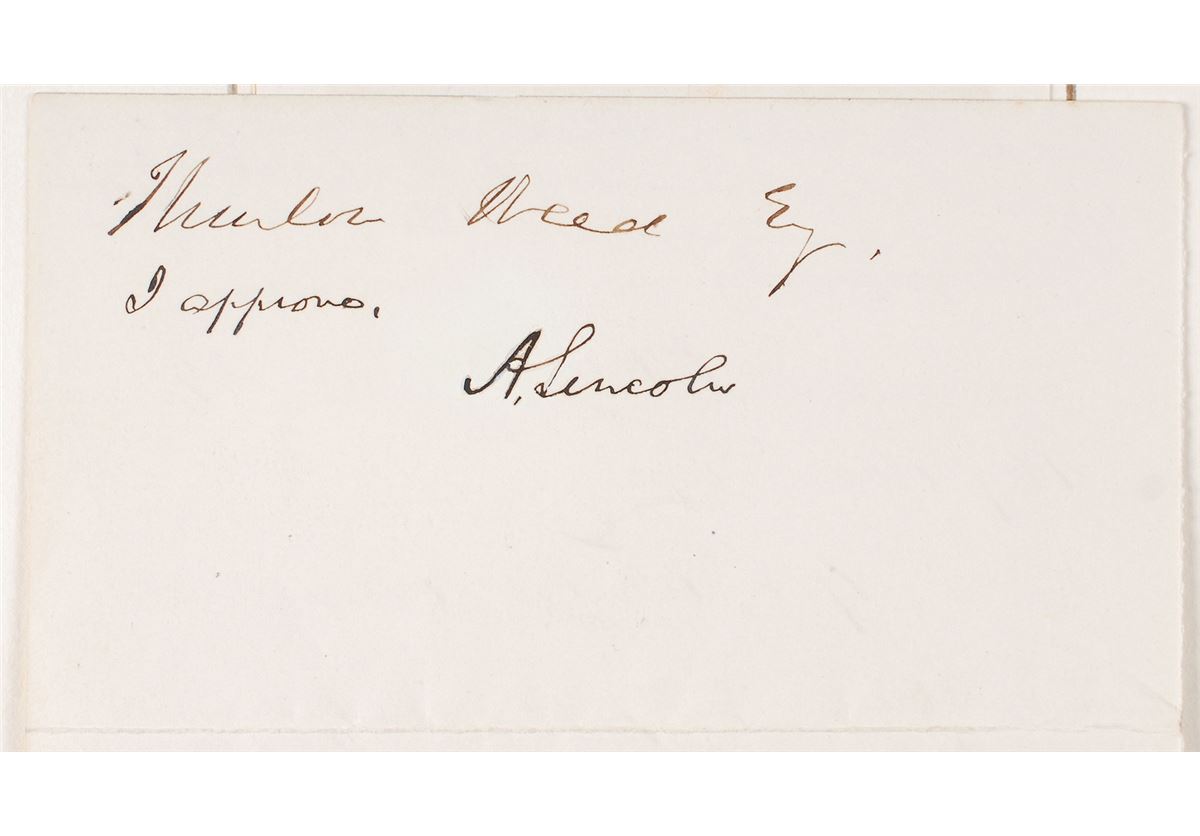 Thurlow Weed Esq.
I approve.
A. Lincoln